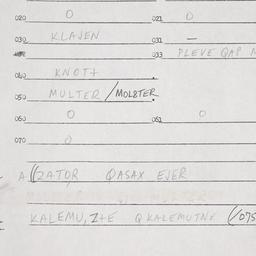 020 O 021 O
030 KLAJEN 031 —
033 PLEVE QAP
040 KNOT+
050 MULTER/MOLSTER.
060 O 061 O
070 O
A ZATOR QASAX EJER
KALEMU, Z+E QKALEMUTNE (/075